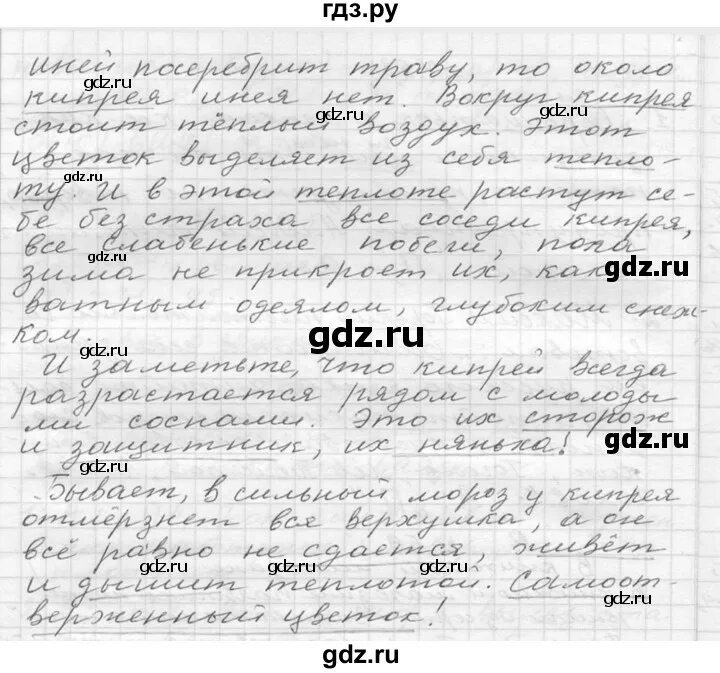 гдз.ру
иней посеребрит траву, то около
кипрея инея нет. Вокруг кипрея
стоит тёплый воздух. Этот
цветок выделяет из себя тепло-
ту. И в этой теплоте растут се-
бе без страха все соседи кипрея,
все слабенькие побеги, пока
зима не прикроет их, как
ватным одеялом, глубоким снеж-
ком.
И заметьте, что кипрей всегда
разрастается рядом с молоды
ми соснами. Это их сторож
и защитник, их нянька!
Бывает, в сильный мороз у кипрея
отмёрзнет вся верхушка, а он
всё равно не сдается, живёт
и дышит теплотой. Самоот-
верженный цветок!
gdz.ru
gdz.ru
gdz.ru
gdz.ru
gdz.ru
gdz.ru
gdz.ru
gdz.ru
gdz.ru
gdz.ru
gdz.ru
gdz.ru
gdz.ru
gdz.ru